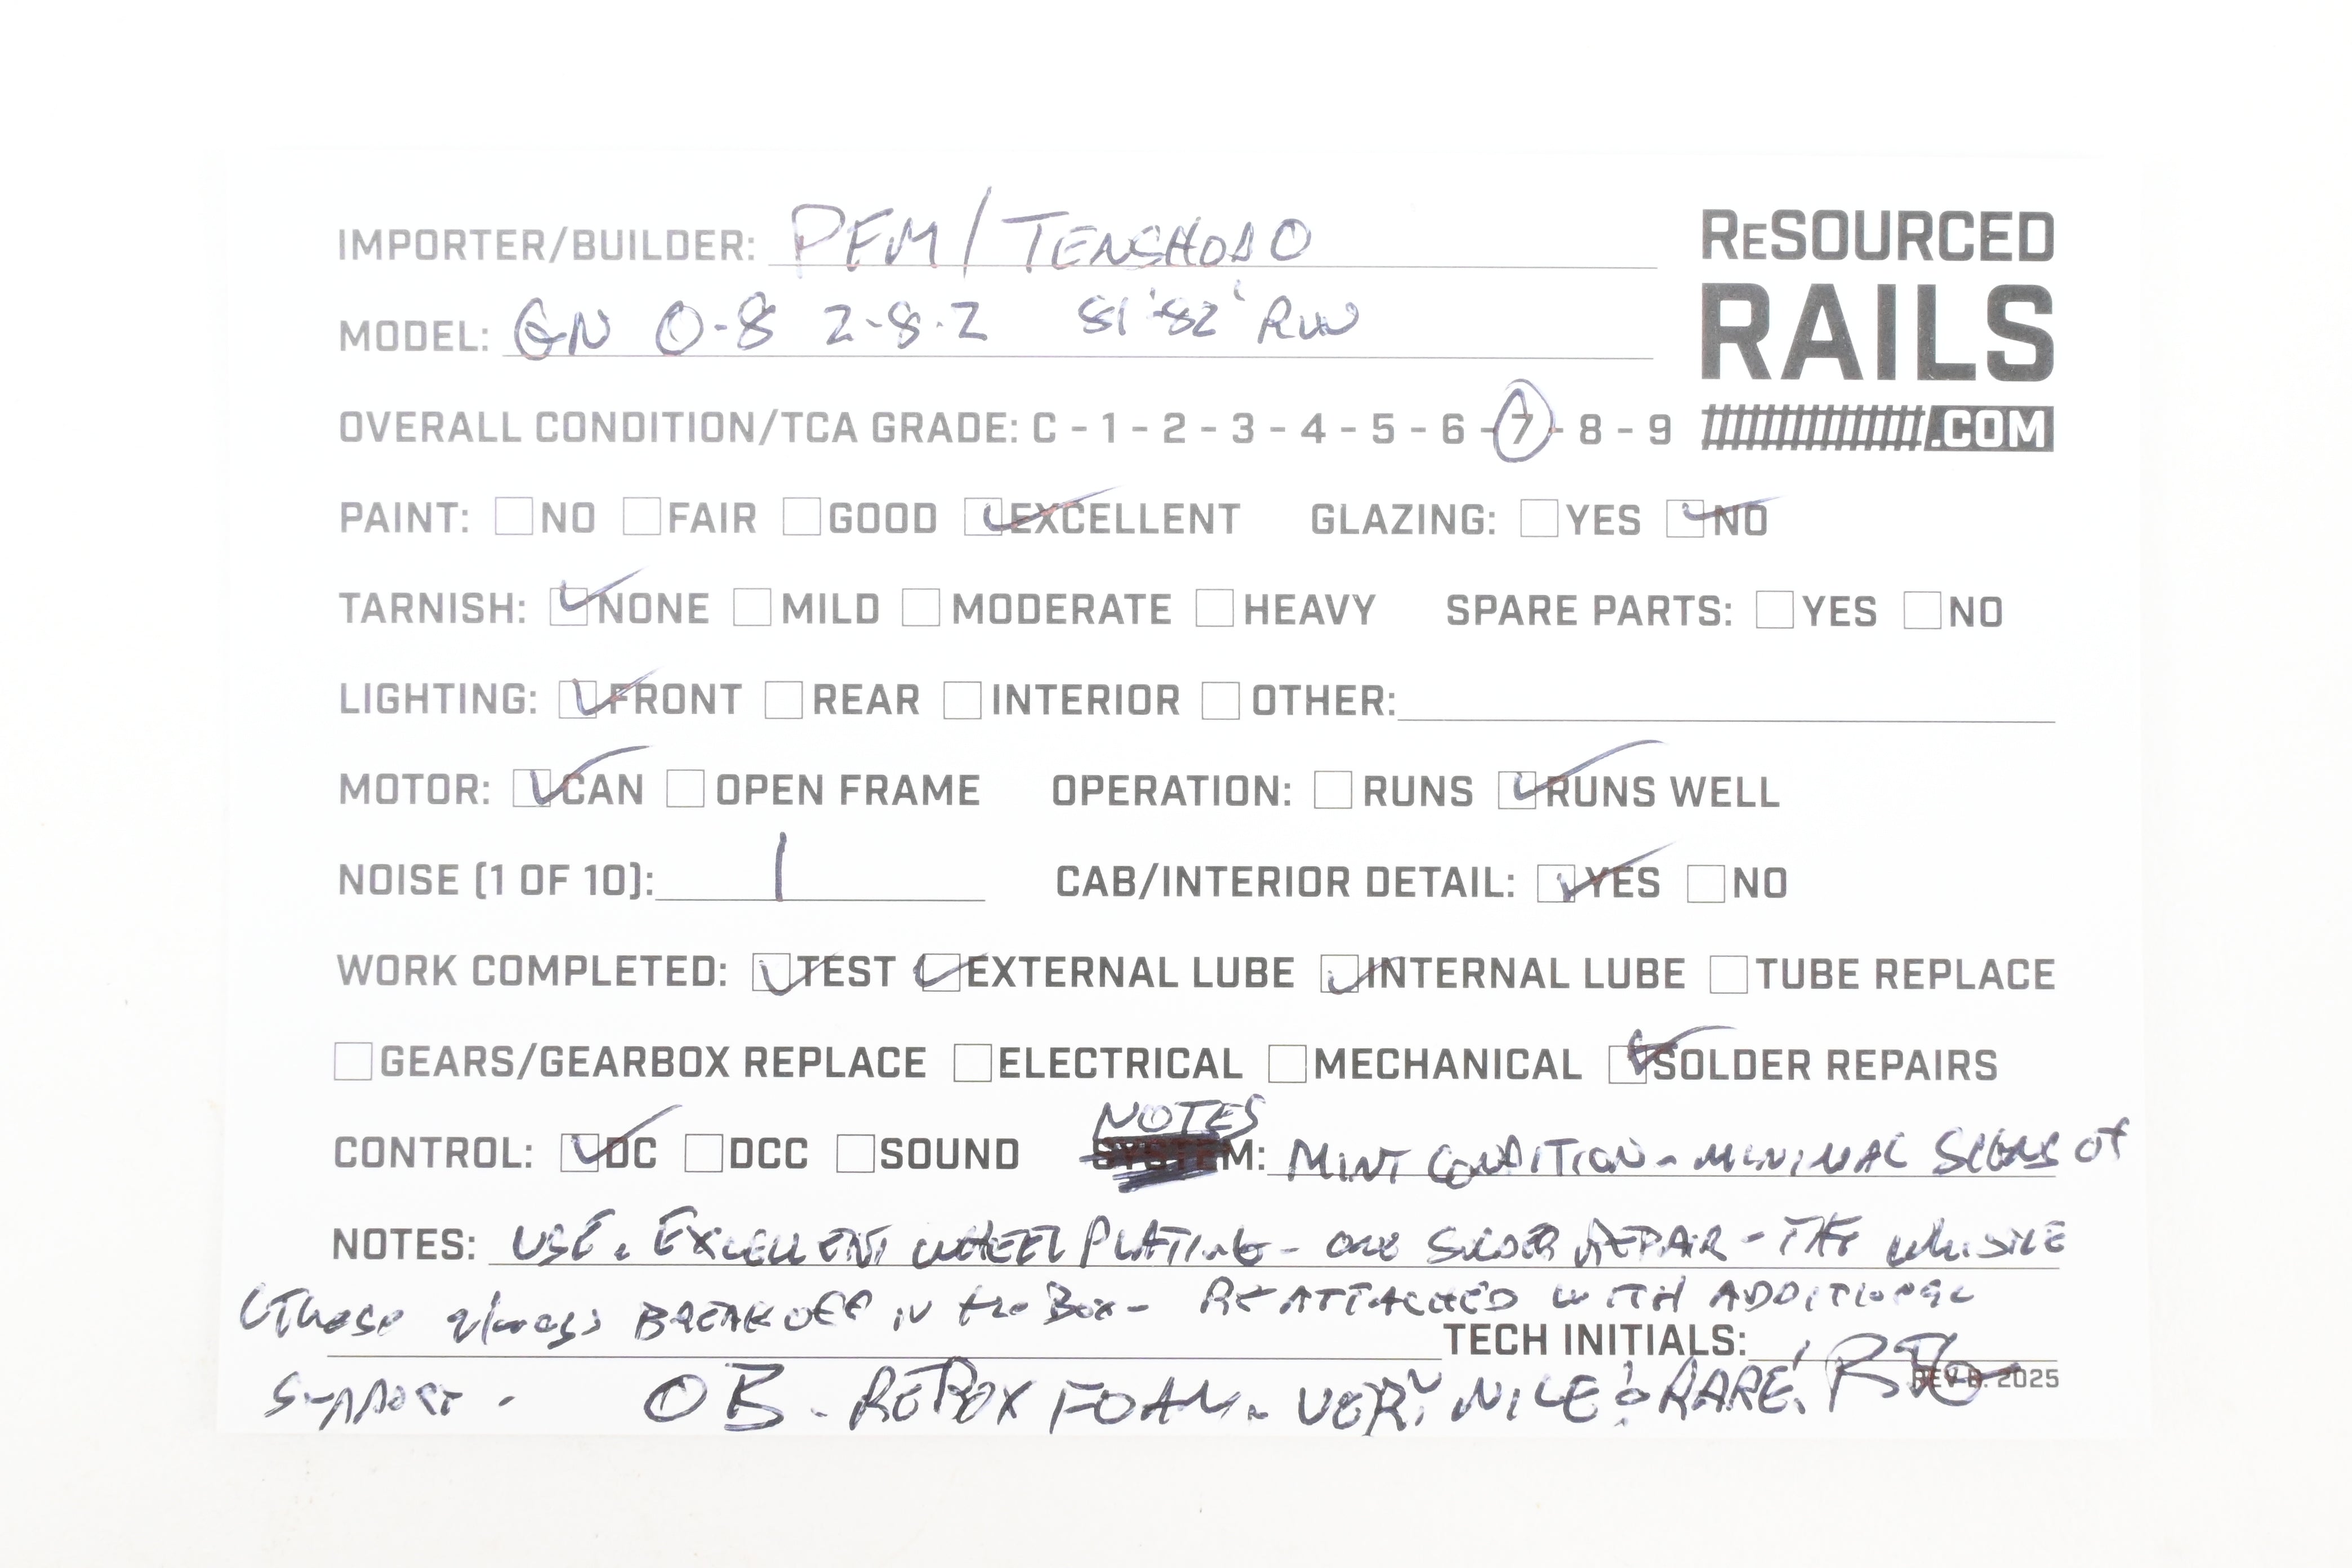 IMPORTER/BUILDER: PFM/TENSHODO
ReSOURCED
RAILS
.COM
MODEL: GN O-8 2-8-2 81'-82' RUN
OVERALL CONDITION/TCA GRADE: C - 1 - 2 - 3 - 4 - 5 - 6 - 7 - 8 - 9
PAINT: NO FAIR GOOD EXCELLENT GLAZING: YES NO
TARNISH: NONE MILD MODERATE HEAVY SPARE PARTS: YES NO
LIGHTING: FRONT REAR INTERIOR OTHER:
MOTOR: CAN OPEN FRAME OPERATION: RUNS RUNS WELL
NOISE (1 OF 10): 1 CAB/INTERIOR DETAIL: YES NO
WORK COMPLETED: TEST EXTERNAL LUBE INTERNAL LUBE TUBE REPLACE
GEARS/GEARBOX REPLACE ELECTRICAL MECHANICAL SOLDER REPAIRS
NOTES
CONTROL: DC DCC SOUND SYSTEM: MINT CONDITION - MINIMAL SIGNS OF
NOTES: USE. EXCELLENT WHEEL PLATING - ONE SOLDER REPAIR - THE WHISTLE
(THESE ALWAYS BREAK OFF IN the Box - REATTACHED WITH ADDITIONAL
TECH INITIALS:
SUPPORT - OB - REPBOX FOAM. VERY NICE & RARE!
REV B. 2025